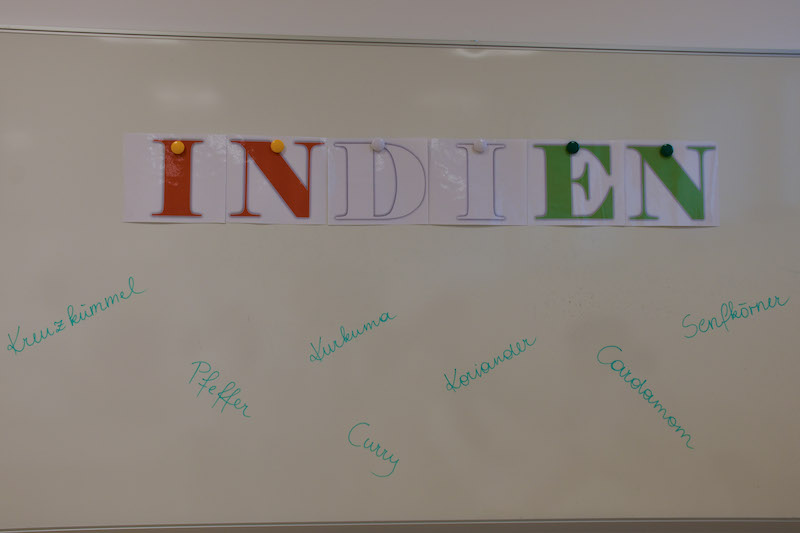 INDIEN
Kreuzkümmel
Pfeffer
Kurkuma
Curry
Koriander
Cardamom
Senfkörner